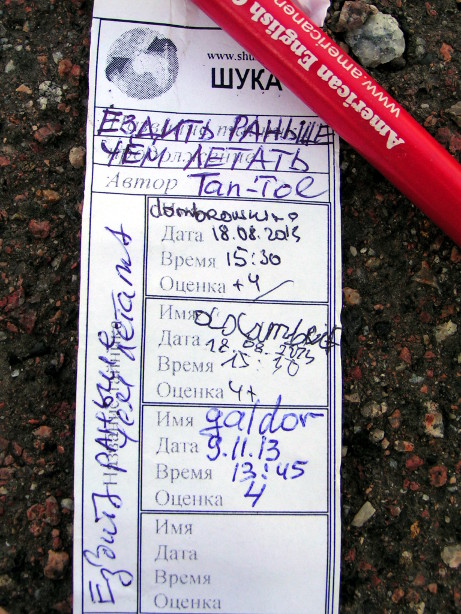 www.shu
ШУКА
ЕЗДИТЬ РАНЬШЕ
ЧЕМ ЛЕТАТЬ
Автор Tan-Tol
Дата 18.08.2013
Время 15:30
Оценка +4
Имя
Дата 18.08.2013
Время 15:30
Оценка 4+
Имя galdor
Дата 9.11.13
Время 13:45
Оценка 4
Имя
Дата
Время
Оценка
Ездить раньше
чем летать
American English C
www.americanen